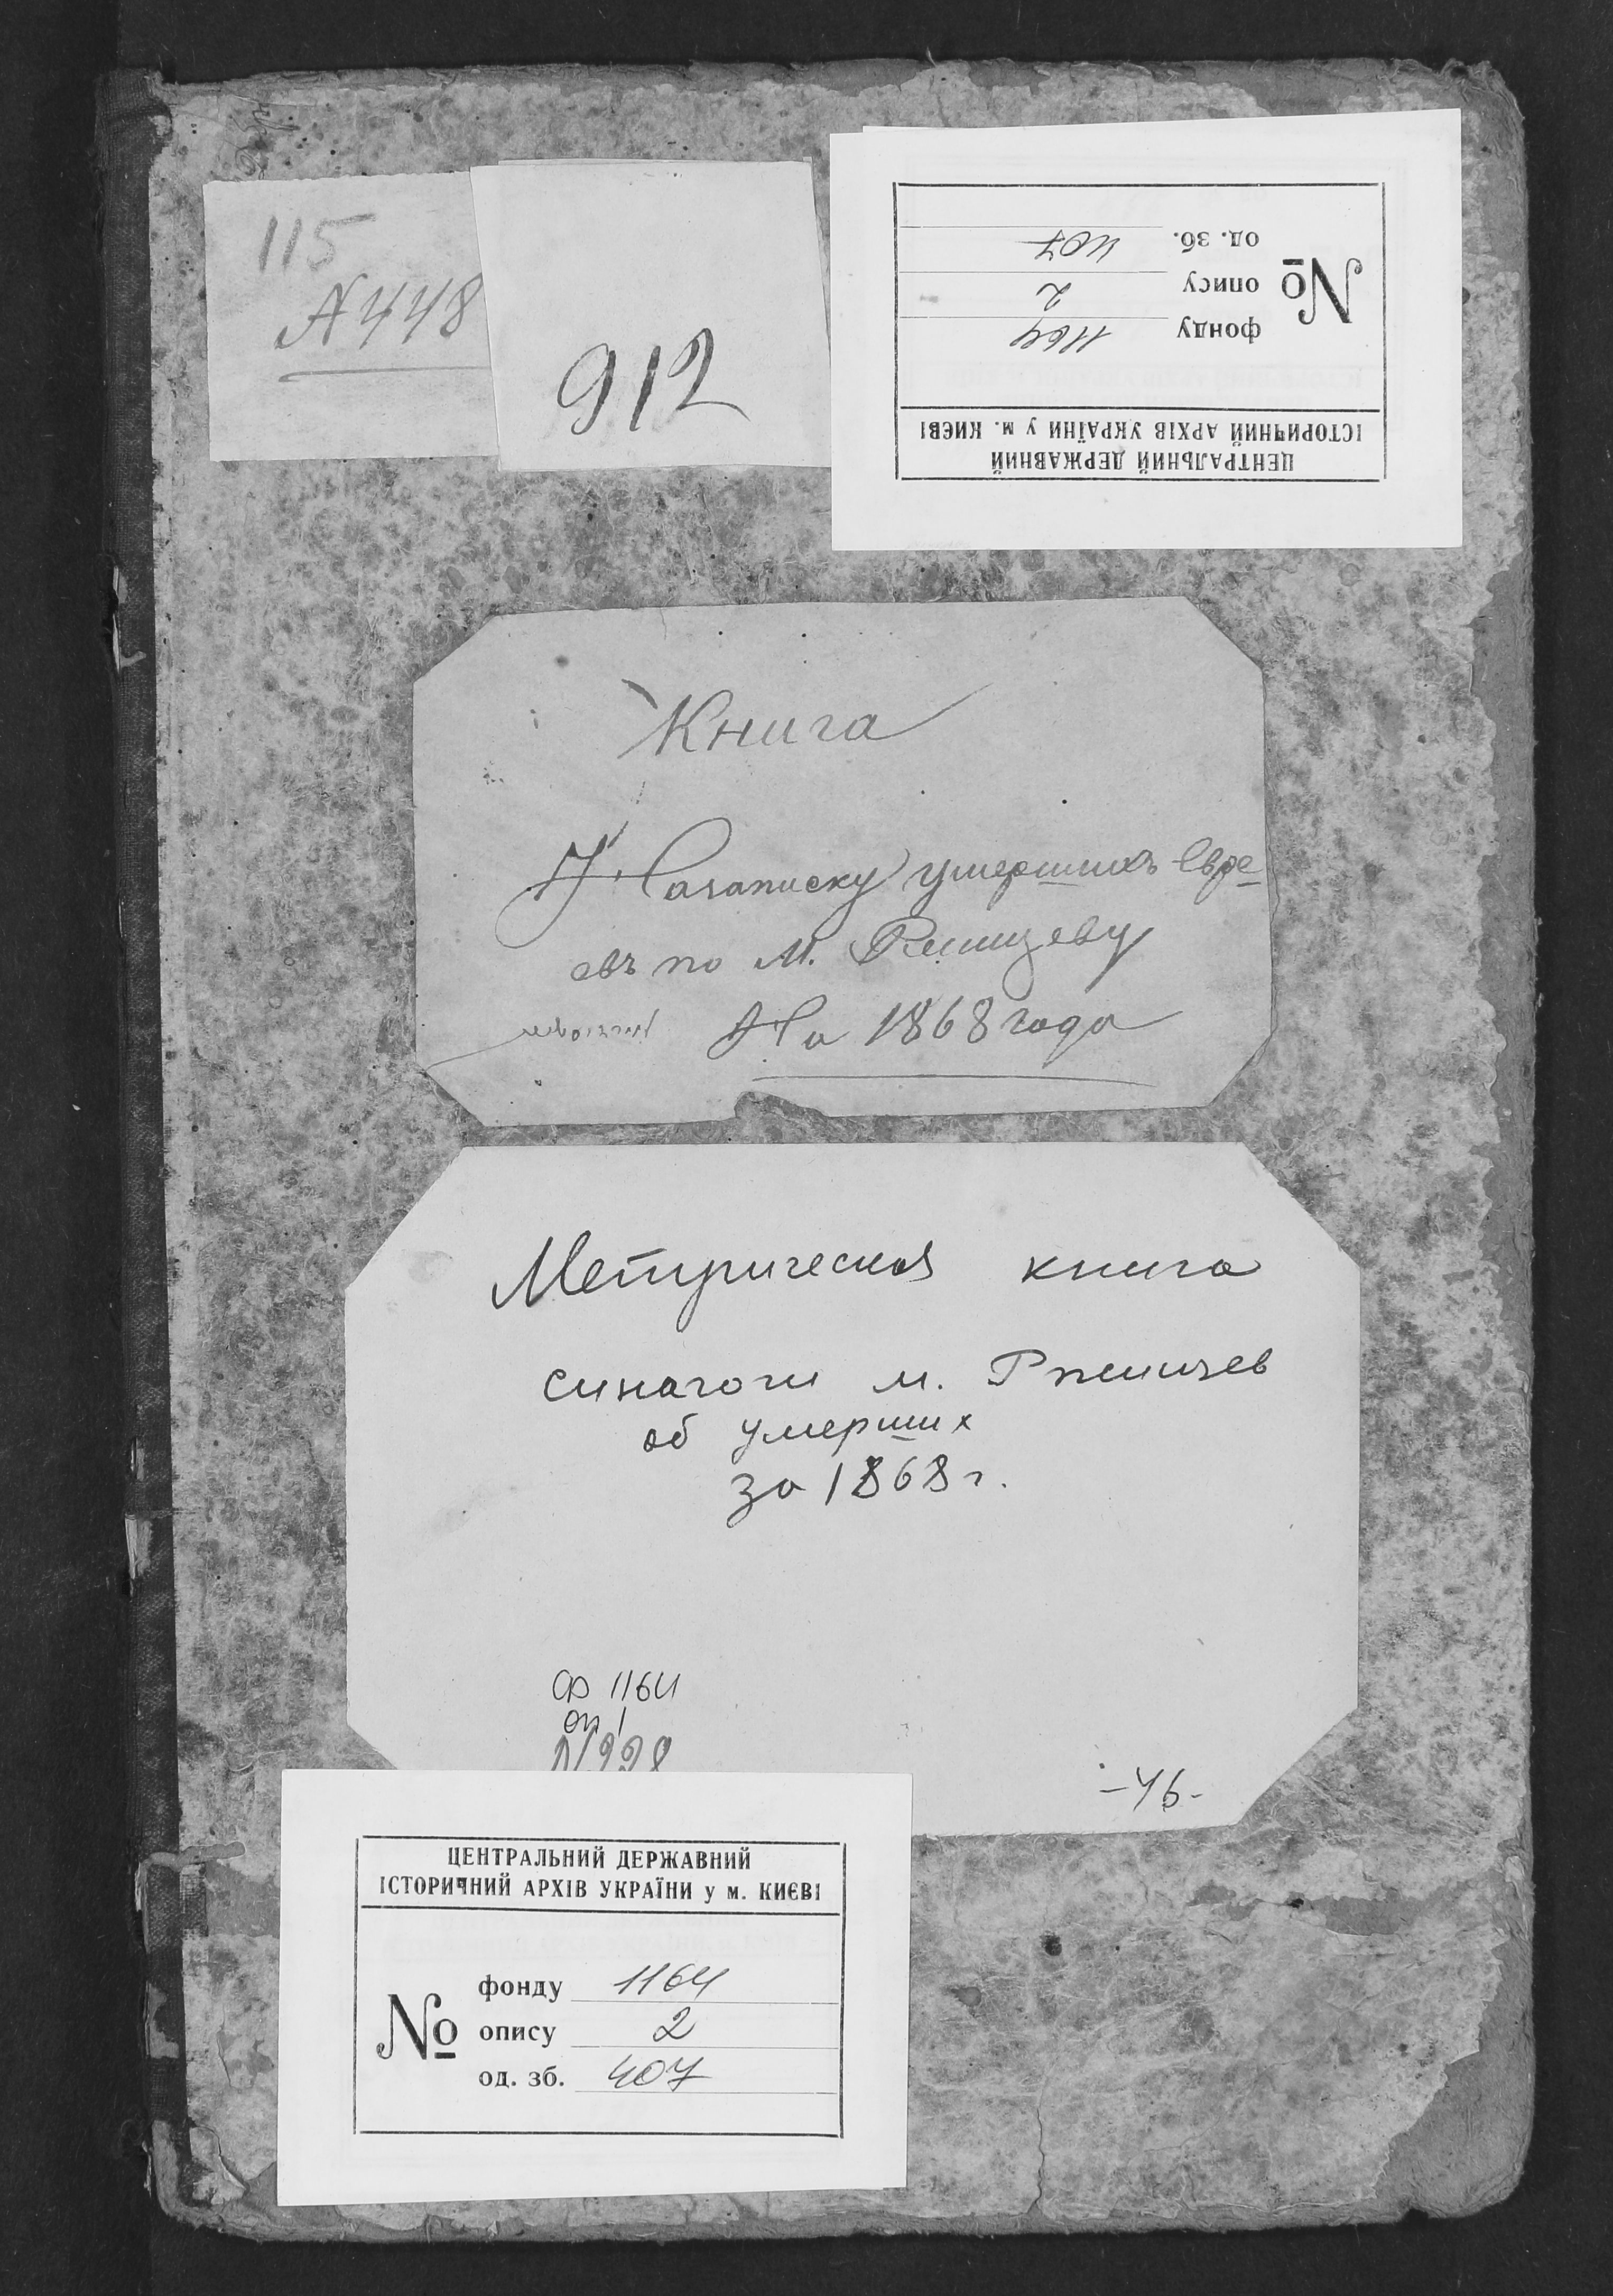 115
N 448
912
ЦЕНТРАЛЬНИЙ ДЕРЖАВНИЙ
ІСТОРИЧНИЙ АРХІВ УКРАЇНИ у м. КИЄВІ
№
фонду 1164
опису 2
од. зб. 407
Книга
умершихъ Евре
евъ по М.
На 1868 года
Метрическая книга
синагоги м. Ржищев
об умерших
за 1868 г.
Ф 1164
оп 1
-46-
ЦЕНТРАЛЬНИЙ ДЕРЖАВНИЙ
ІСТОРИЧНИЙ АРХІВ УКРАЇНИ у м. КИЄВІ
№
фонду 1164
опису 2
од. зб. 407